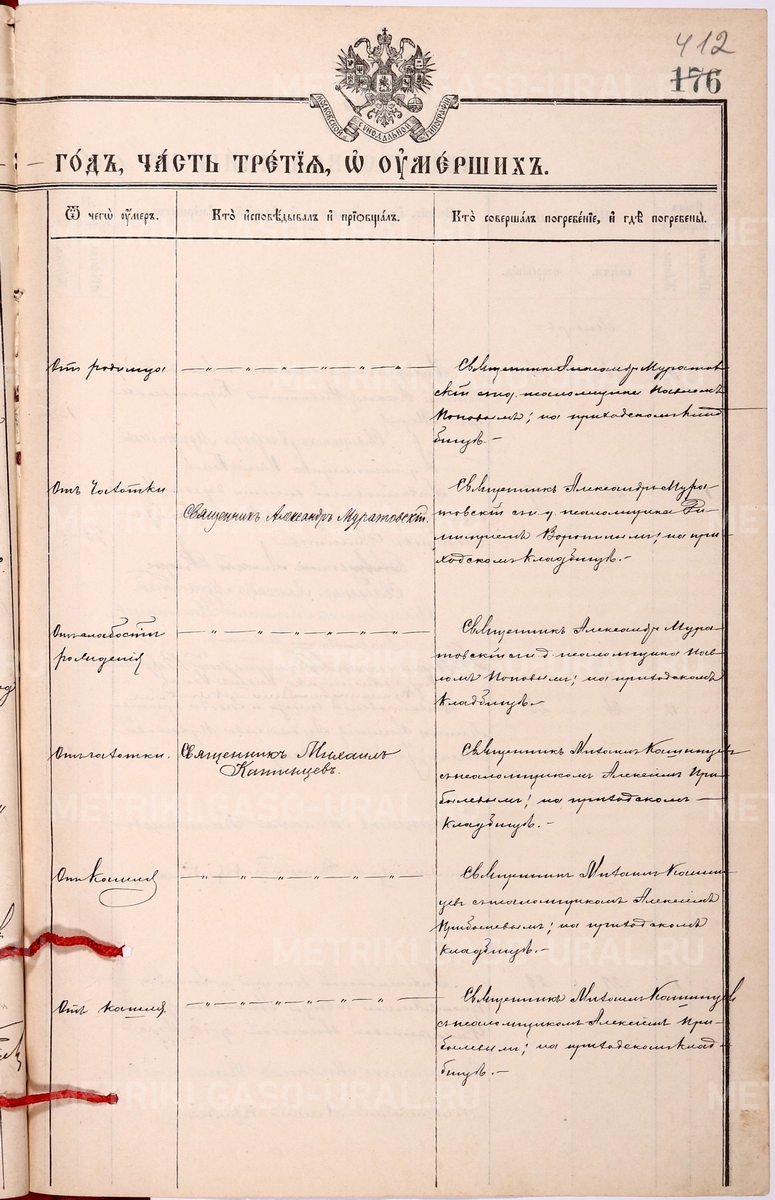 412
176
МОСКОВСКОЙ СѴНОДАЛЬНОЙ ТИПОГРАФІИ
ГО́ДЪ, ЧА́СТЬ ТРЕ́ТІѦ, Ѡ ОУ҆МЕ́РШИХЪ.
Ѿ чегѡ̀ оу҆́меръ.
Кто̀ и҆сповѣ́дывалъ и҆ прїѡбща́лъ.
Кто̀ соверша́лъ погребе́нїе, и҆ гдѣ̀ погребены̀.
Отъ родимца
Священникъ Александръ Муратов-
скій съ и. д. псаломщика Павломъ
Поповымъ; на приходскомъ клад-
бищѣ. -
Отъ чахотки
Священникъ Александръ Муратовскій.
Священникъ Александръ Мура-
товскій съ и. д. псаломщика Ди-
митріемъ; на при-
ходскомъ кладбищѣ. -
Отъ слабости
рожденія
Священникъ Александръ Мура-
товскій съ и. д. псаломщика Пав-
ломъ Поповымъ; на приходскомъ
кладбищѣ. -
Отъ чахотки.
Священникъ Михаилъ
Кашинцевъ.
Священникъ Михаилъ Кашинцевъ
съ псаломщикомъ Алексѣемъ При-
былевымъ; на приходскомъ
кладбищѣ. -
Отъ кашля
Священникъ Михаилъ Кашин-
цевъ съ псаломщикомъ Алексѣемъ
Прибылевымъ; на приходскомъ
кладбищѣ. -
Отъ кашля.
Священникъ Михаилъ Кашинцевъ
съ псаломщикомъ Алексѣемъ При-
былевымъ; на приходскомъ клад-
бищѣ. -
METRIKI.GASO-URAL.RU